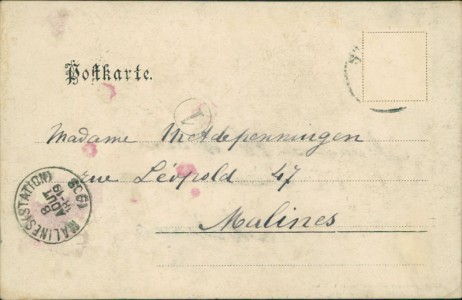 Postkarte.
T
Madame Metdepenningen
rue Léopold 47
Malines
MALINES (STATION)
8
AOUT